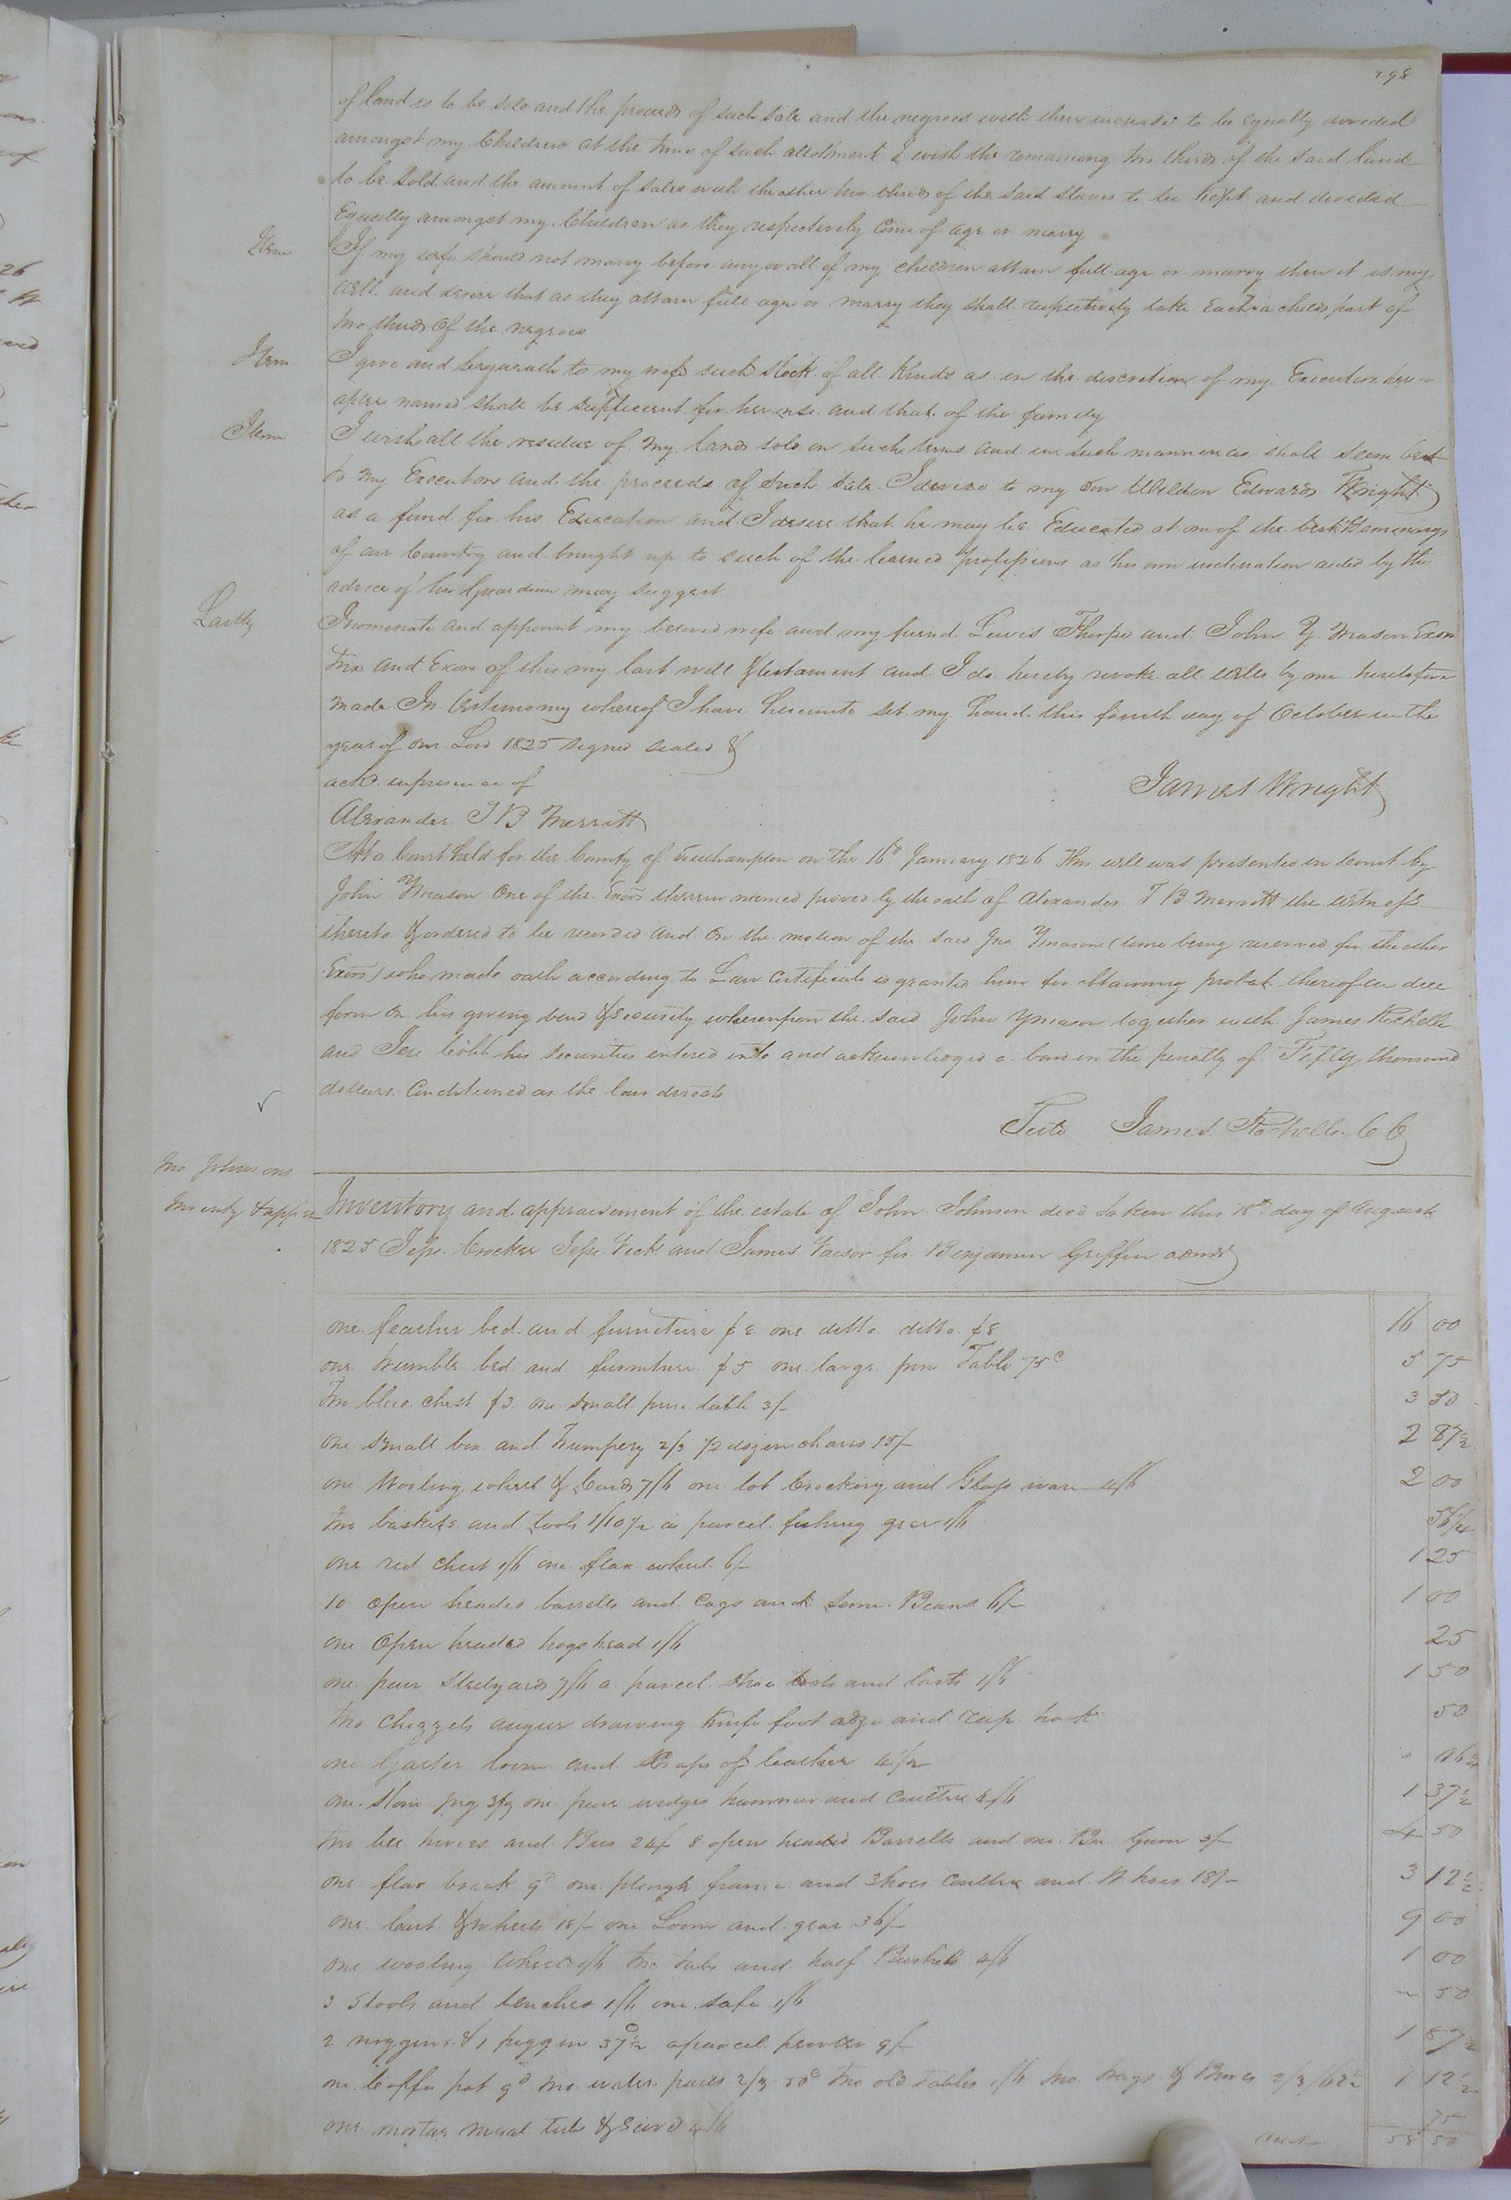 298
of land is to be sold and the proceeds of such sale and the negroes with their increase to be equally divided
amongst my Children at the time of such allotment I wish the remaining two thirds of the said land
to be sold and the amount of sales with the other two thirds of the said slaves to be kept and divided
Equally amongst my Children as they respectively come of age or marry
Item If my wife should not marry before any or all of my children attain full age or marry then it is my
will and desire that as they attain full age or marry they shall respectively take each a childs part of
two thirds of the negroes
Item I give and bequeath to my wife such stock of all kinds as in the discretion of my Executors here=
after named shall be sufficient for her use and that of the family
Item I wish all the residue of my lands sold on such terms and in such manner as shall seem best
to my Executors and the proceeds of such sale I devise to my son Weldon Edwards Wright
as a fund for his Education and I desire that he may be Educated at one of the best
of our Country and brought up to such of the learned professions as his own inclination aided by the
advice of his Guardian may suggest
Lastly I nominate and appoint my beloved wife and my friend Lewis Thorpe and John Y. Mason Exec
trix and Exors of this my last will & testament and I do hereby revoke all wills by me heretofore
made In testimony whereof I have hereunto set my hand this fourth day of October in the
year of our Lord 1825 signed sealed &
ackd in presence of
James Wright
Alexander T B Merritt
At a Court held for the County of Southampton on the 16th January 1826 This will was presented in Court by
John Y Mason one of the Exors therein named proved by the oath of Alexander T B Merritt the witness
thereto & ordered to be recorded and on the motion of the said Jno Y Mason (time being reserved for the other
Exors) who made oath according to Law certificate is granted him for obtaining probat thereof in due
form on his giving bond & security whereupon the said John Y Mason together with James Rochelle
and Jere Cobb his securities entered into and acknowledged a bond in the penalty of Fifty thousand
dollars Conditioned as the law directs
Teste James Rochelle C C
Jno Johnsons
Inventy & appr
Inventory and appraisement of the estate of John Johnson decd taken this day of August
1825 Jesse Crocker Jesse and James for Benjamin Griffin admr
one feather bed and furniture $8 one ditto ditto $8 16 00
one trumble bed and furniture $5 one large pine Table 75c 5 75
Two blue chest $3 one small pine table 3/- 3 50
one small box and trumpery 2/3 1/2 dozen chairs 15/- 2 87 1/2
one wooling wheel & Cards 7/6 one lot Crockery and Glass ware 4/6 2 00
two baskets and tools 1/10 1/2 a parcel fishing gear 1/6 56 1/4
one red chest 1/6 one flax wheel 6/- 1 25
10 open headed barrells and Cags and some Beans 6/- 1 00
one open headed hogshead 1/6 25
one pair stedyards 7/6 a parcel shoe tools and lasts 1/6 1 50
two chizzels augur drawing knife foot adze and reap hook 50
one Garter loom and scraps of leather 4/
one stone jug 3/9 one pair wedges hammer and Coulter 4/6 1 37 1/2
two bee hives and Bees 24/- 8 open headed Barrells and one Bee Gum 3/- 4 50
one flax break 9d one plough frame and shoes coulter and hoes 18/- 3 12 1/2
one Cart & wheels 18/- one Loom and gear 36/- 9 00
one wooling wheel 1/6 two tubs and half Bushels 4/6 1 00
3 stools and benches 1/6 one safe 1/6 50
2 noggins & 1 piggin 37 1/2c a parcel pewter 9/- 1 87 1/2
one Coffee pot 9d two water pails 2/3 50c two old tables 1/6 two & 1 12 1/2
one mortar meal tub & Sieve 4/6 75
58 50